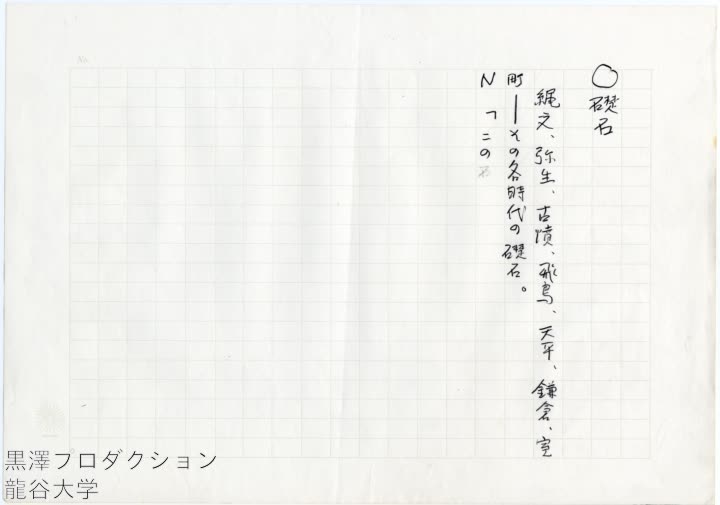 ○礎石
縄文、弥生、古墳、飛鳥、天平、鎌倉、室
町―その各時代の礎石。
N「この
黒澤プロダクション
龍谷大学